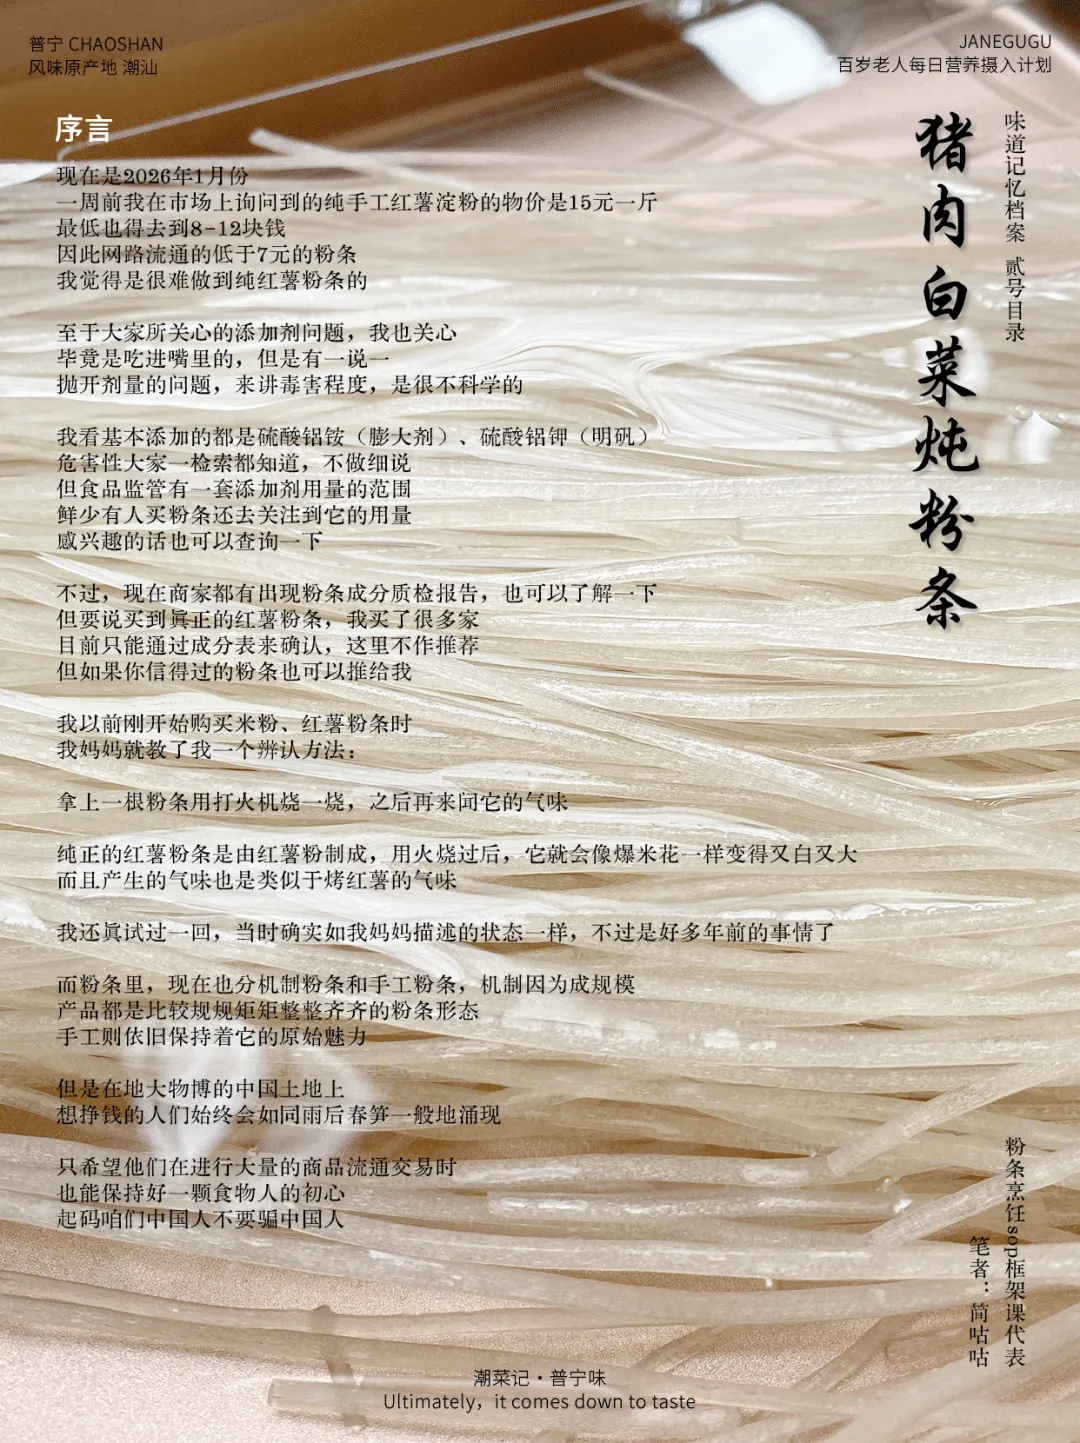 普宁 CHAOSHAN
风味原产地 潮汕
JANEGUGU
百岁老人每日营养摄入计划
味道记忆档案 贰号目录
猪肉白菜炖粉条
序言
现在是2026年1月份
一周前我在市场上询问到的纯手工红薯淀粉的物价是15元一斤
最低也得去到8-12块钱
因此网路流通的低于7元的粉条
我觉得是很难做到纯红薯粉条的
至于大家所关心的添加剂问题，我也关心
毕竟是吃进嘴里的，但是有一说一
抛开剂量的问题，来讲毒害程度，是很不科学的
我看基本添加的都是硫酸铝铵（膨大剂）、硫酸铝钾（明矾）
危害性大家一检索都知道，不做细说
但食品监管有一套添加剂用量的范围
鲜少有人买粉条还去关注到它的用量
感兴趣的话也可以查询一下
不过，现在商家都有出现粉条成分质检报告，也可以了解一下
但要说买到真正的红薯粉条，我买了很多家
目前只能通过成分表来确认，这里不作推荐
但如果你信得过的粉条也可以推给我
我以前刚开始购买米粉、红薯粉条时
我妈妈就教了我一个辨认方法：
拿上一根粉条用打火机烧一烧，之后再来闻它的气味
纯正的红薯粉条是由红薯粉制成，用火烧过后，它就会像爆米花一样变得又白又大
而且产生的气味也是类似于烤红薯的气味
我还真试过一回，当时确实如我妈妈描述的状态一样，不过是好多年前的事情了
而粉条里，现在也分机制粉条和手工粉条，机制因为成规模
产品都是比较规规矩矩整整齐齐的粉条形态
手工则依旧保持着它的原始魅力
但是在地大物博的中国土地上
想挣钱的人们始终会如同雨后春笋一般地涌现
只希望他们在进行大量的商品流通交易时
也能保持好一颗食物人的初心
起码咱们中国人不要骗中国人
粉条烹饪sop框架课代表
笔者：简咕咕
潮菜记·普宁味
Ultimately, it comes down to taste